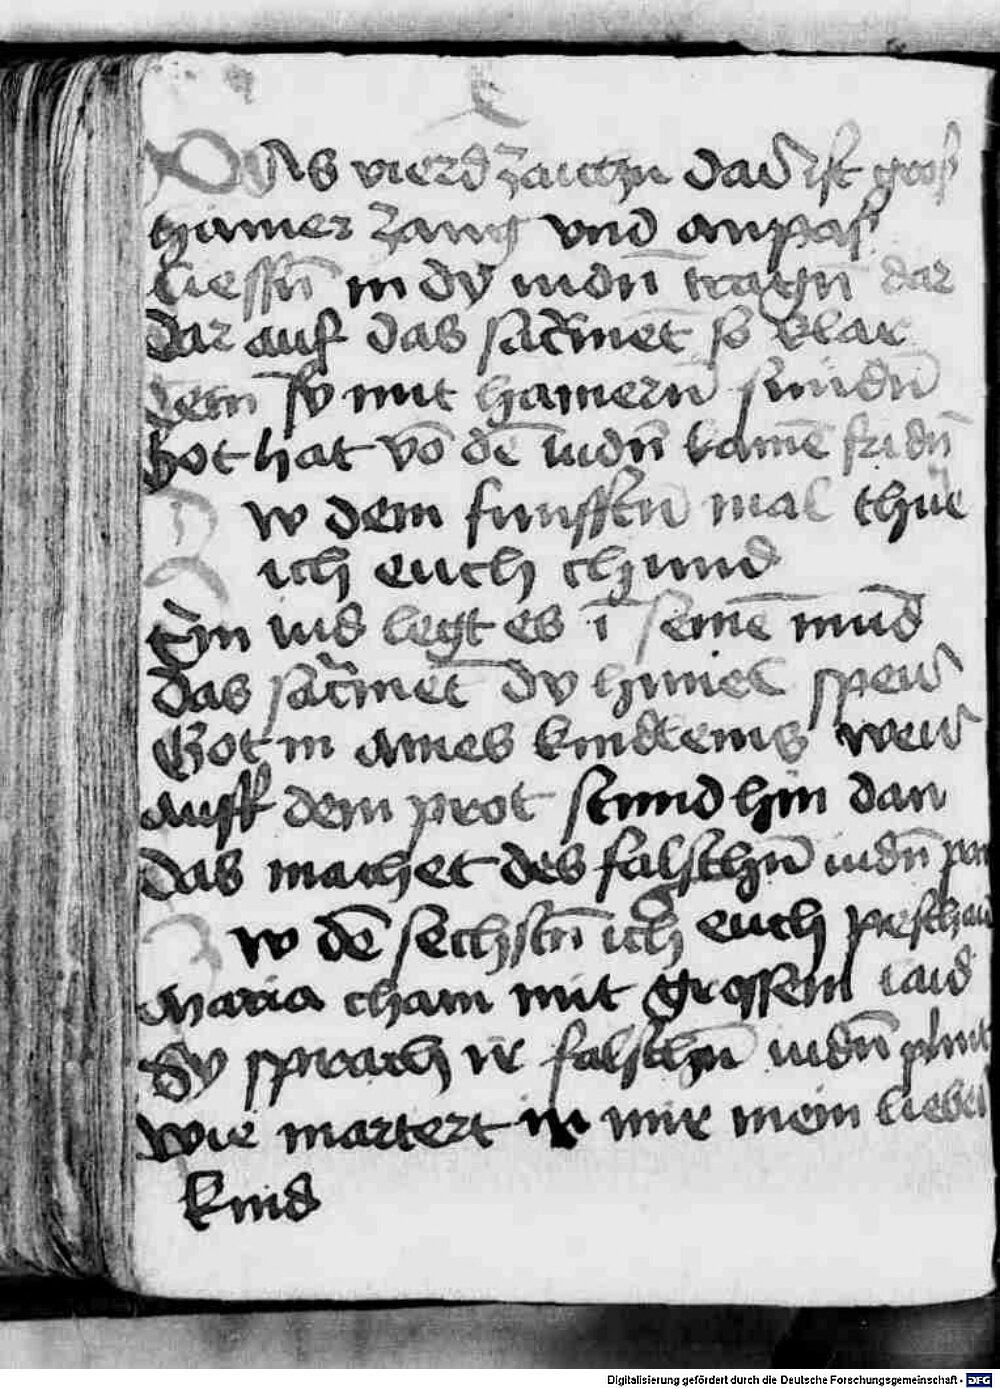 Das vierd zaichn das ist gross
hamer zang vnd anpass
liessn̄ in dy iudn̄ tragn̄ dar
dar auf das sacͬmēt so klar
mit hamern̄
Got hat vō dē iudn̄ kainē fridn̄
w dem funfftn̄ mal thue
ich euch chund
Ein iud legt es ī seinē mūd
das sacͬmēt dy himel speis
Got in aines kindleins weis
auff dem prot stund hin dan
das machet des falschn̄ iudn̄ pan
w dē sechstn̄ ich euch peschaid
Maria cham mit grossem laid
Sy sprach ir falschn̄ iudn̄ plint
wie martert ir mir mein liebes
kind
Digitalisierung gefördert durch die Deutsche Forschungsgemeinschaft - DFG